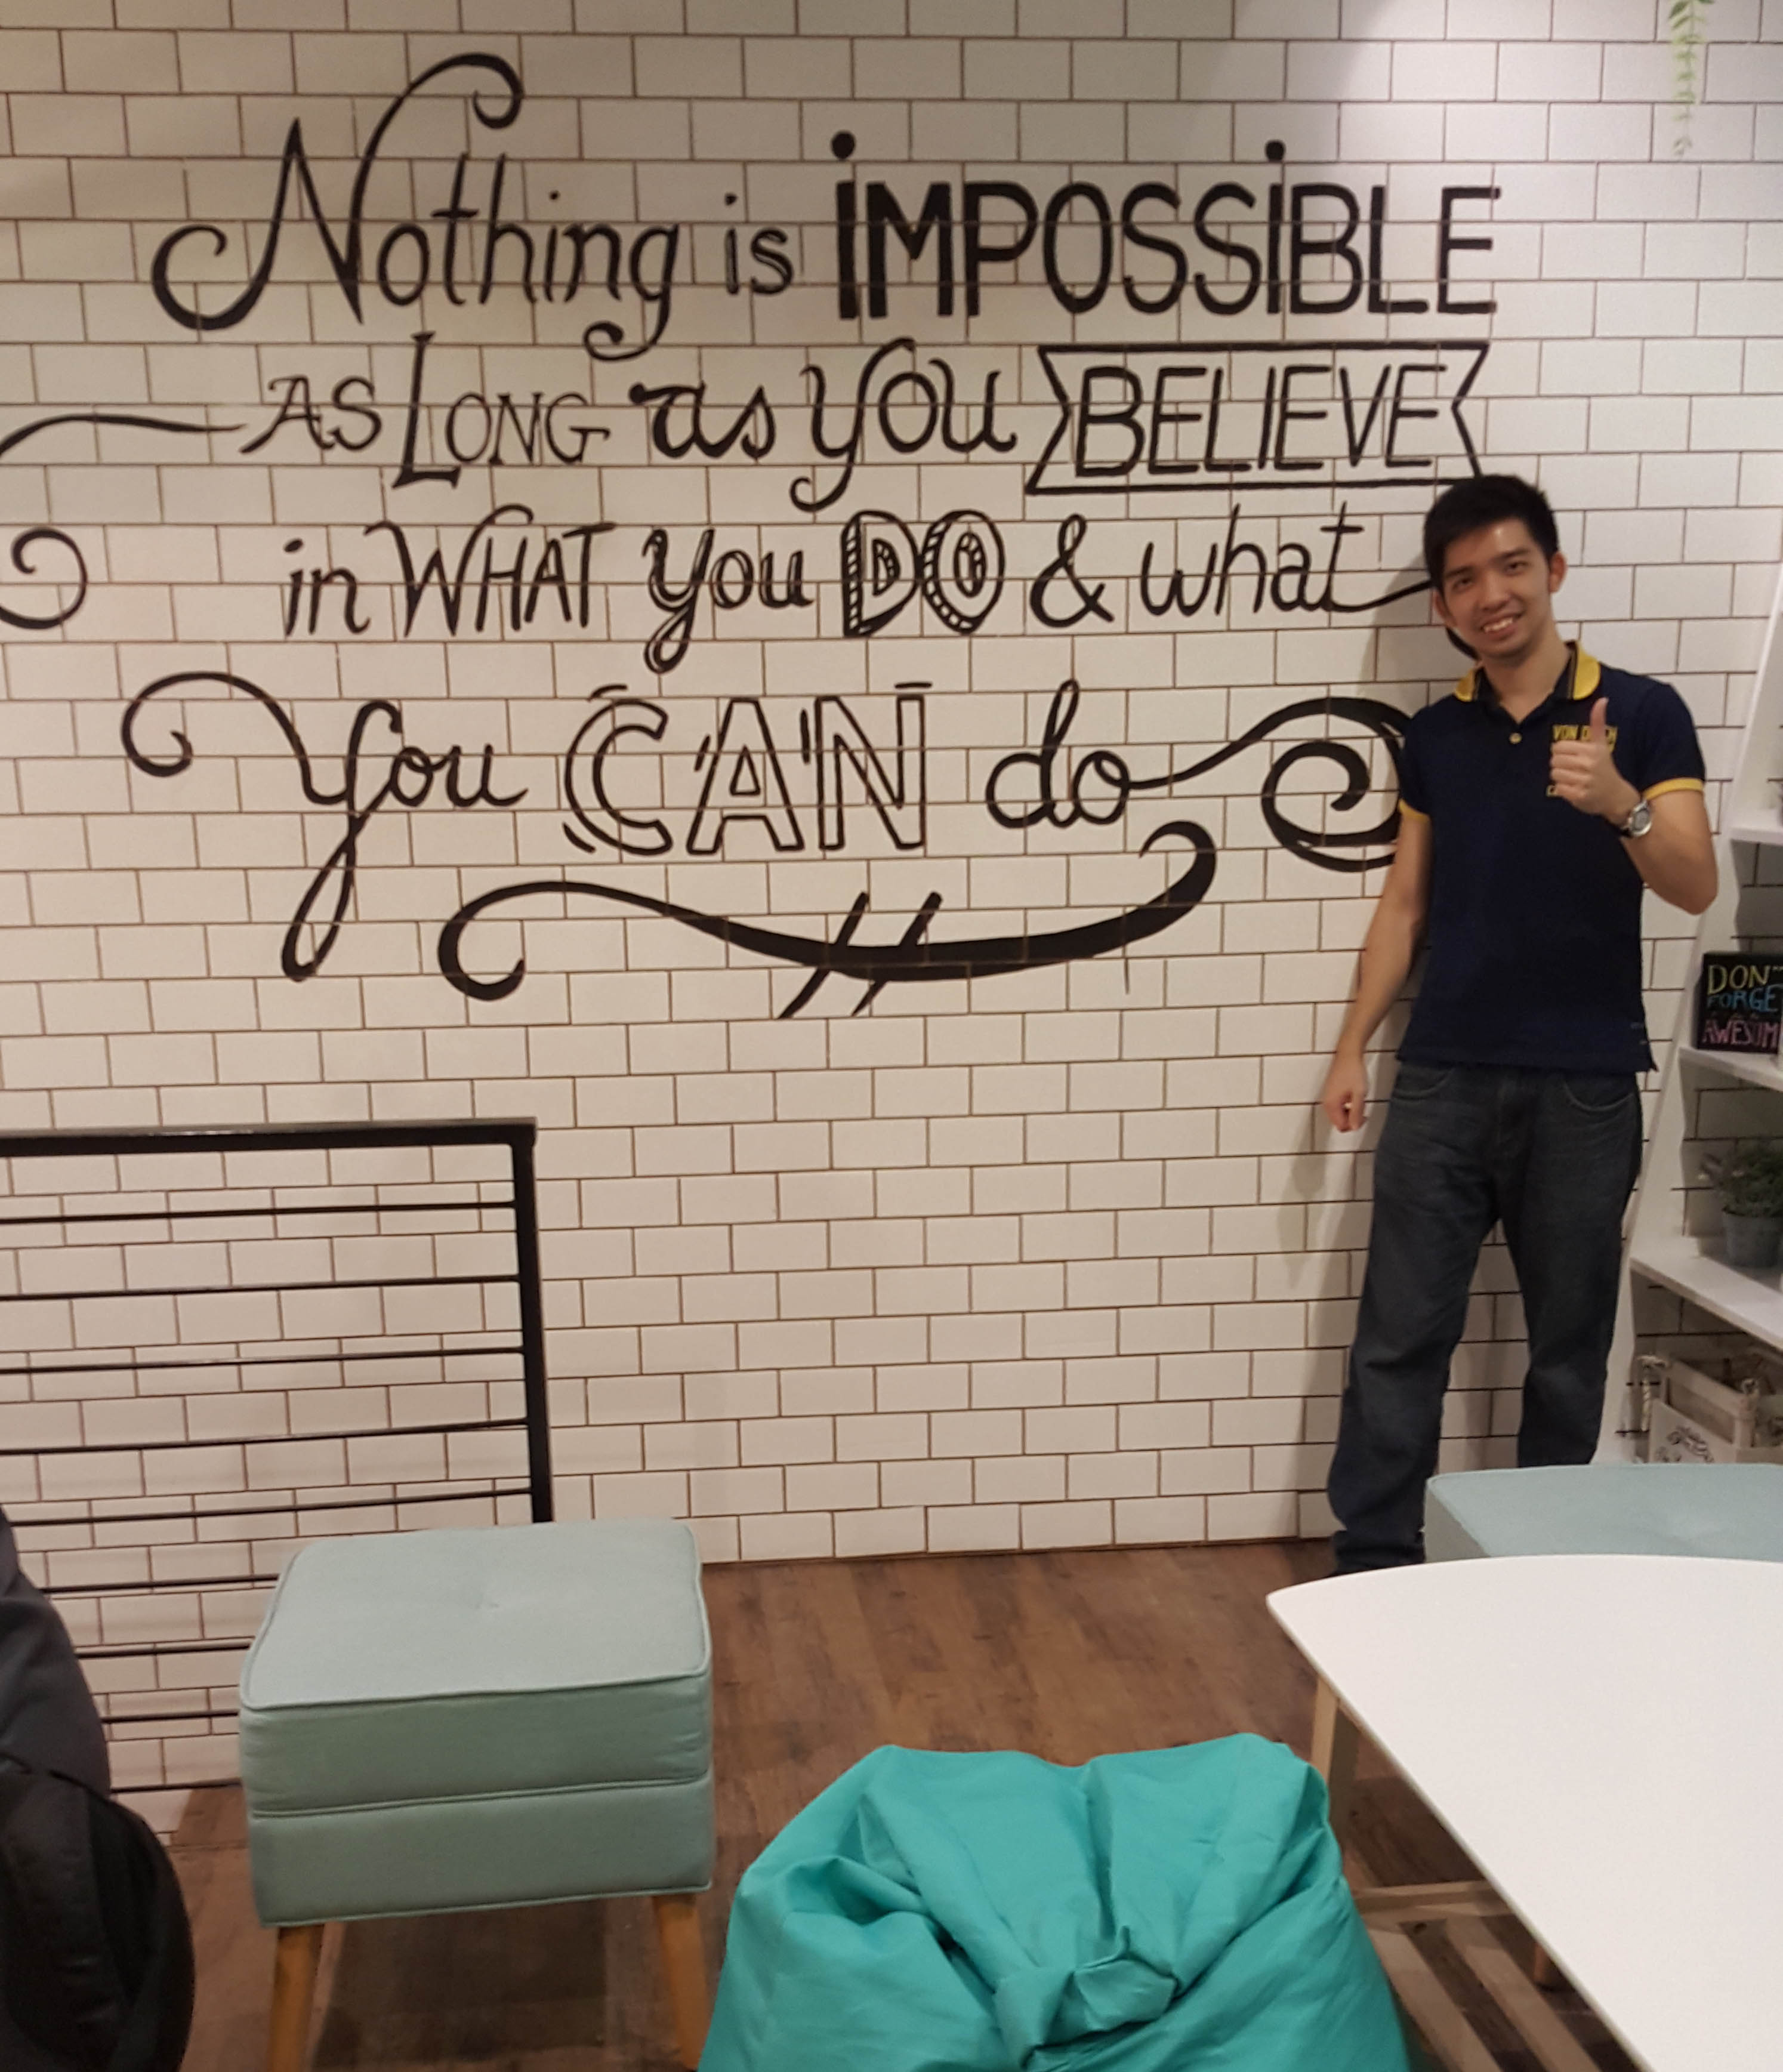 Nothing is iMPOSSiBLE
AS LONG as you BELIEVE
in WHAT you DO & what
you CAN do
VON D
DON'T
FORGE
AWESOM